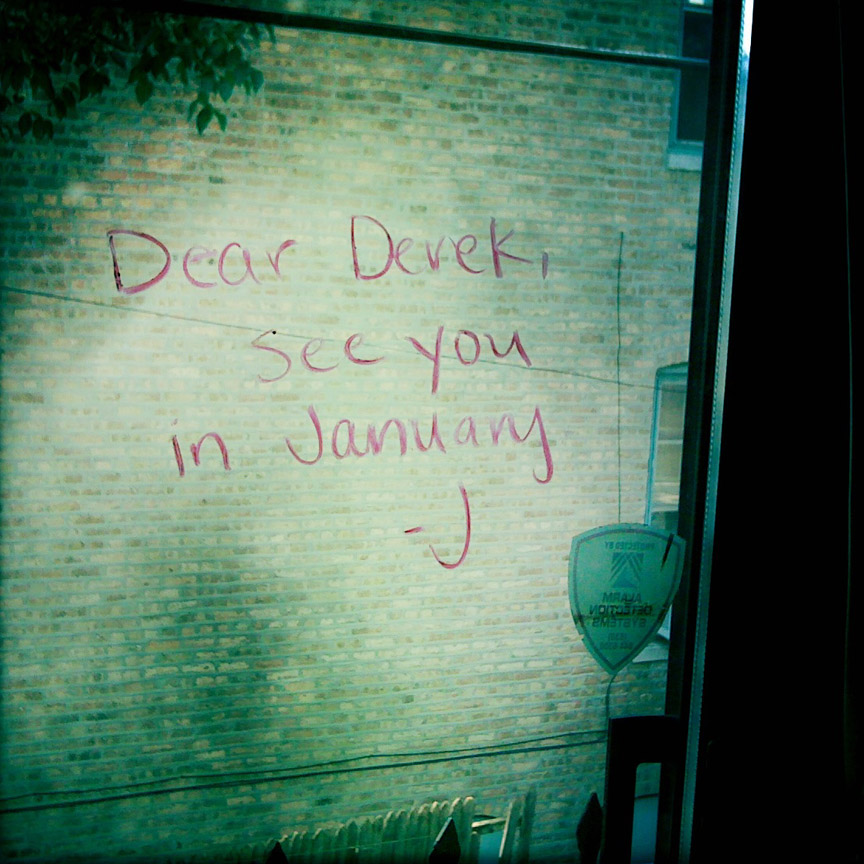 Dear Derek,
see you
in January
-J
PROTECTED BY
ALARM
DETECTION
SYSTEMS